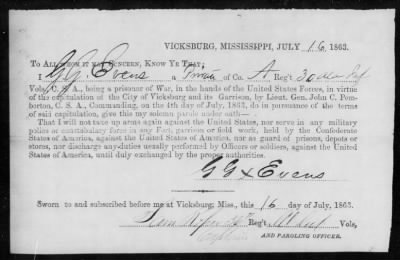 VICKSBURG, MISSISSIPPI, JULY 16 1863.
TO ALL WHOM IT MAY CONCERN, KNOW YE THAT:
I G.G. Evens a Private of Co. A Reg't 30 Ala Inf
Vols., C. S. A., being a prisoner of War, in the hands of the United States Forces, in virtue
of the capitulation of the City of Vicksburg and its Garrison, by Lieut. Gen. John C. Pem-
berton, C. S. A., Commanding, on the 4th day of July, 1863, do in pursuance of the terms
of said capitulation, give this my solemn parole under oath—
That I will not take up arms again against the United States, nor serve in any military
police or constabulary force in any Fort, garrison or field work, held by the Confederate
States of America, against the United States of America, nor as guard of prisons, depots or
stores, nor discharge any duties usually performed by Officers or soldiers, against the United
States of America, until duly exchanged by the proper authorities.
G G x Evens
Sworn to and subscribed before me at Vicksburg, Miss., this 16 day of July, 1863.
Reg't Vols,
AND PAROLING OFFICER.